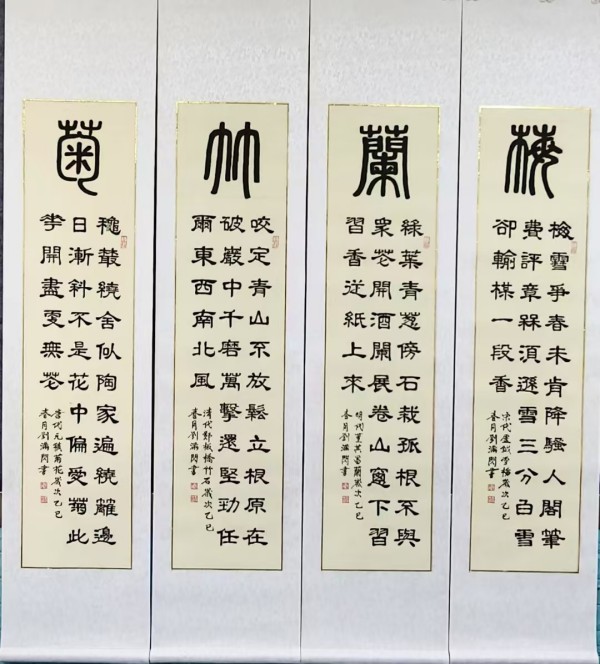 梅
梅雪爭春未肯降騷人閣筆
費評章梅須遜雪三分白雪
卻輸梅一段香
宋代盧鉞雪梅歲次乙巳
春月劉滿閣書
蘭
綠葉青蔥傍石栽孤根不與
眾花開酒闌展卷山窗下習
習香從紙上來
明代董其昌蘭歲次乙巳
春月劉滿閣書
竹
咬定青山不放鬆立根原在
破巖中千磨萬擊還堅勁任
爾東西南北風
清代鄭板橋竹石歲次乙巳
春月劉滿閣書
菊
秋叢繞舍似陶家遍繞籬邊
日漸斜不是花中偏愛菊此
華開盡更無花
唐代元稹菊花歲次乙巳
春月劉滿閣書